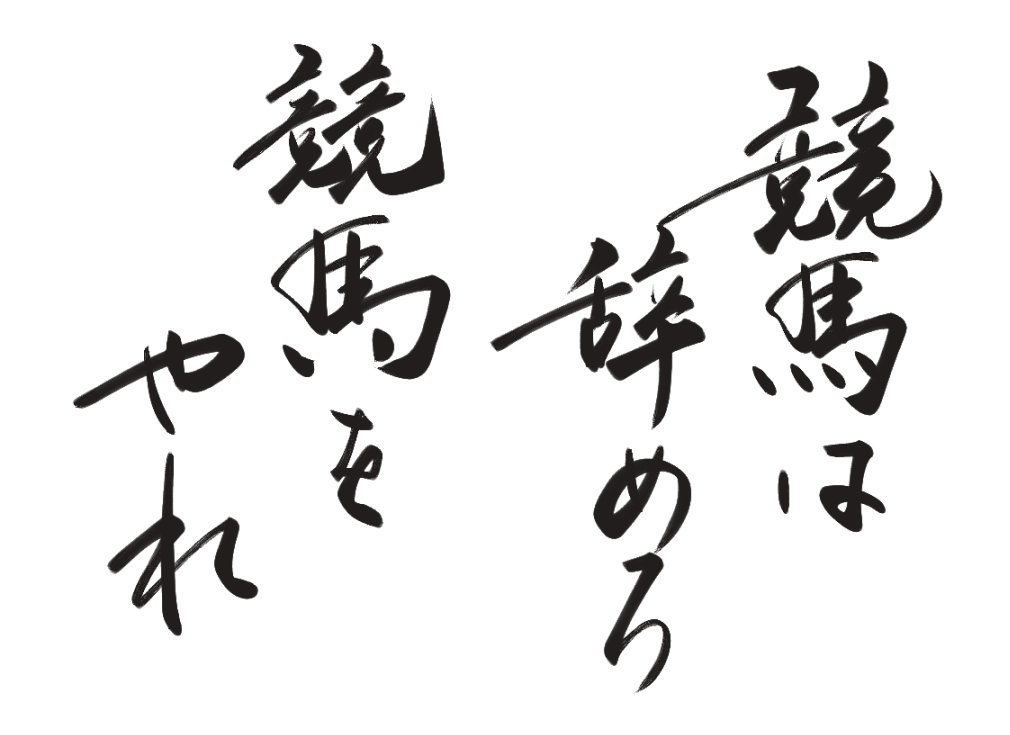 競馬は
辞めろ
競馬を
やれ